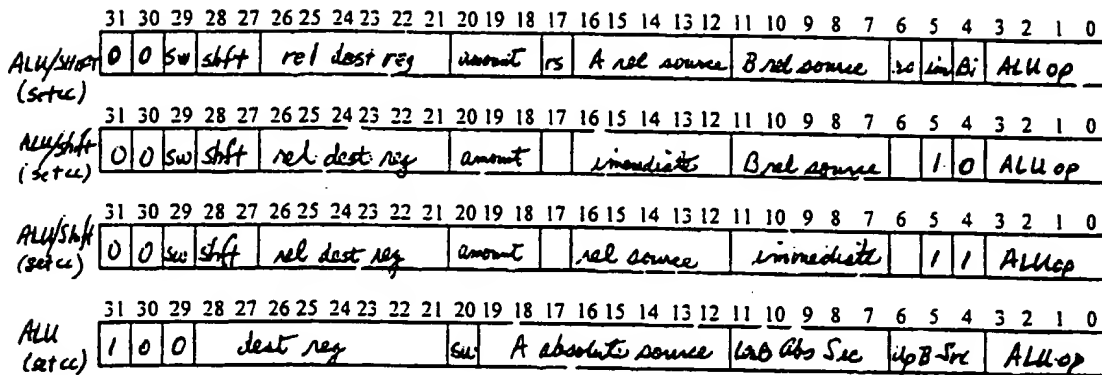 31 30 29 28 27 26 25 24 23 22 21 20 19 18 17 16 15 14 13 12 11 10 9 8 7 6 5 4 3 2 1 0
ALU/Shift 0 0 sw shft rel dest reg amount rs A rel source B rel source im Bi ALU op
(set cc)
31 30 29 28 27 26 25 24 23 22 21 20 19 18 17 16 15 14 13 12 11 10 9 8 7 6 5 4 3 2 1 0
ALU/shft 0 0 sw shft rel dest reg amount immediate B rel source 1 0 ALU op
(set cc)
31 30 29 28 27 26 25 24 23 22 21 20 19 18 17 16 15 14 13 12 11 10 9 8 7 6 5 4 3 2 1 0
ALU/Shft 0 0 sw shft rel dest reg amount rel source immediate 1 1 ALU op
(set cc)
31 30 29 28 27 26 25 24 23 22 21 20 19 18 17 16 15 14 13 12 11 10 9 8 7 6 5 4 3 2 1 0
ALU 1 0 0 dest reg sw A absolute source B Abs Src B-Src ALU op
(set cc)